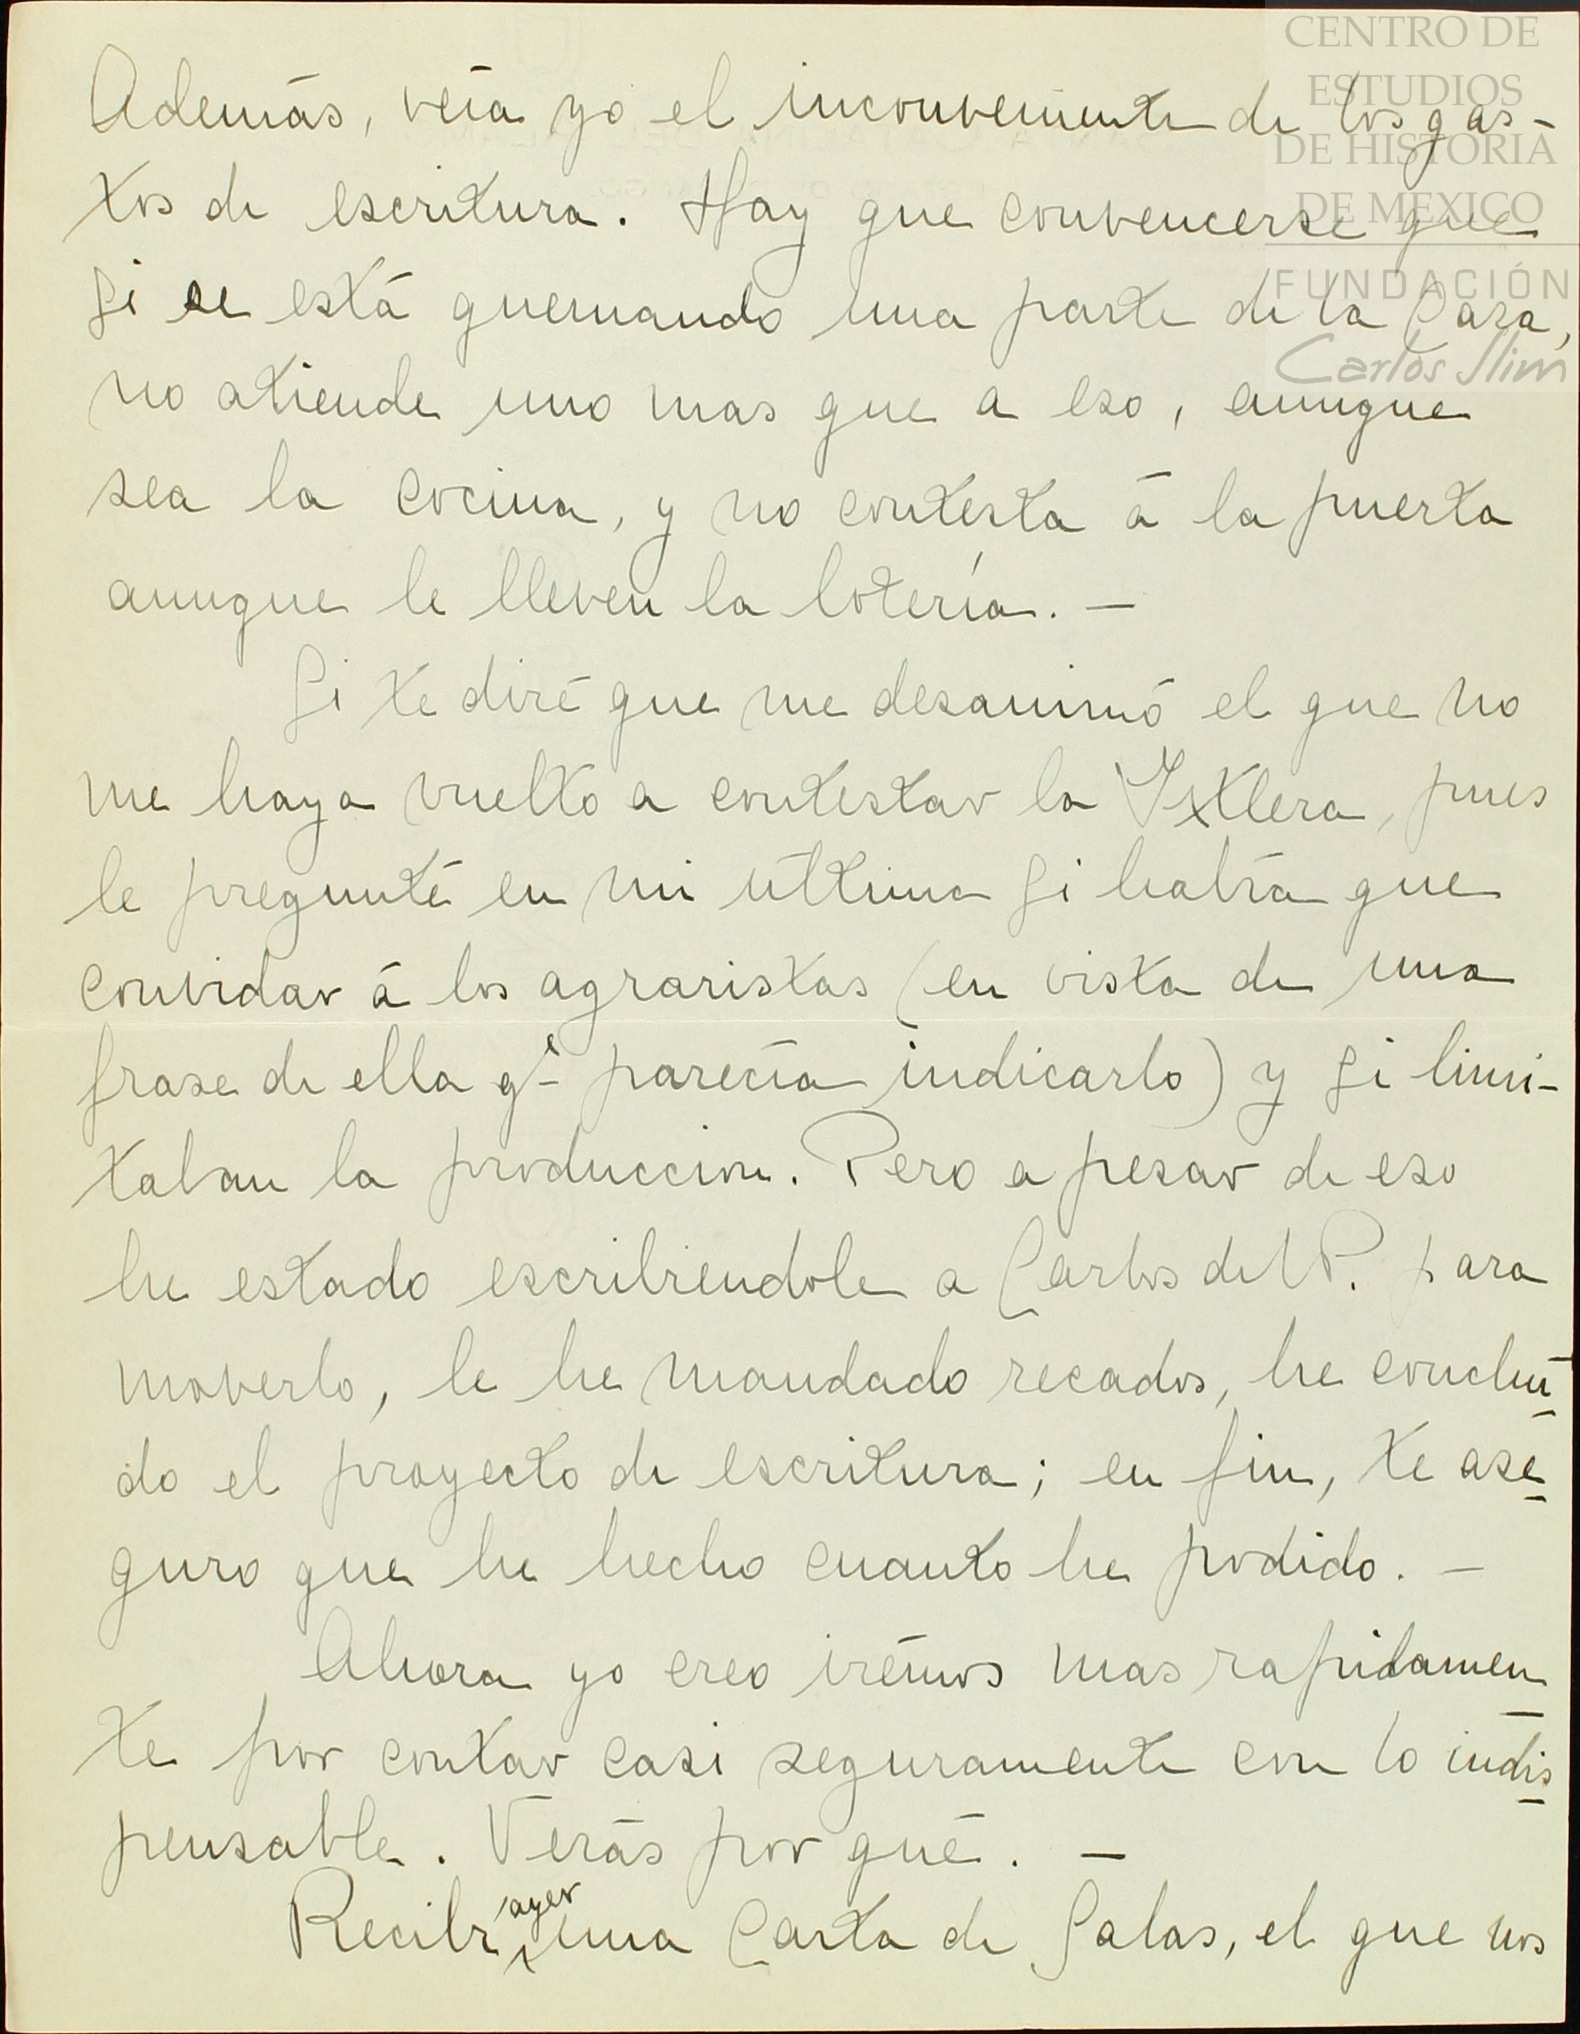 CENTRO DE
ESTUDIOS
DE HISTORIA
DE MEXICO
FUNDACIÓN
Carlos Slim
Además, veía yo el inconveniente de los gas-
tos de escritura. Hay que convencerse que
si se está quemando una parte de la Casa,
no atiende uno mas que a eso, aunque
sea la cocina, y no contesta á la puerta
aunque le lleven la lotería. —
Si te diré que me desanimó el que no
me haya vuelto a contestar la Ixtlera, pues
le pregunté en mi última si habría que
convidar á los agraristas (en vista de una
frase de ella qe parecía indicarlo) y si limi-
taban la produccion. Pero a pesar de eso
he estado escribiendole a Carlos del P. para
moverlo, le he mandado recados, he concluí
do el proyecto de escritura; en fin, te ase
guro que he hecho cuanto he podido. —
Ahora yo creo irémos mas rapidamen
te por contar casi seguramente con lo indis
pensable. Verás por qué. —
Recibí ayer una Carta de Salas, el que nos